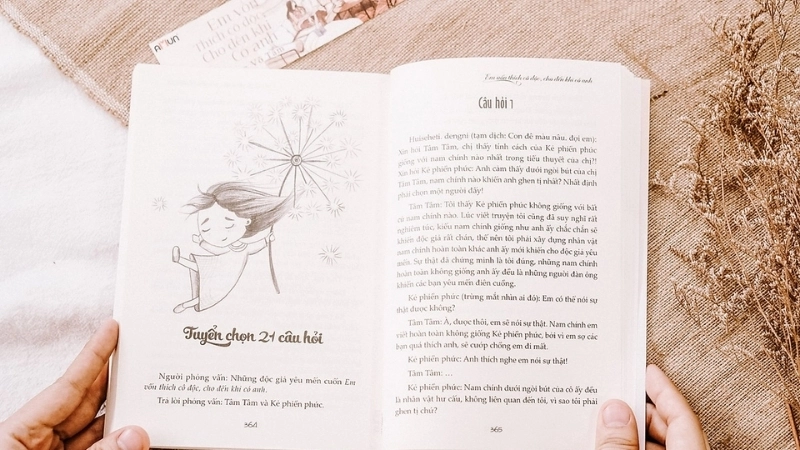 Em vốn
thích cô độc,
Cho đến khi
có anh
Tuyển chọn 21 câu hỏi
Người phỏng vấn: Những độc giả yêu mến cuốn Em
vốn thích cô độc, cho đến khi có anh.
Trả lời phỏng vấn: Tâm Tâm và Kẻ phiền phức.
364
Em vốn thích cô độc, cho đến khi có anh
Câu hỏi 1
dengni (tạm dịch: Con dê màu nâu, đợi em):
Xin hỏi Tâm Tâm, chị thấy tính cách của Kẻ phiền phức
giống với nam chính nào nhất trong tiểu thuyết của chị?!
Xin hỏi Kẻ phiền phức: Anh cảm thấy dưới ngòi bút của chị
Tâm Tâm, nam chính nào khiến anh ghen tị nhất? Nhất định
phải chọn một người đấy!
Tâm Tâm: Tôi thấy Kẻ phiền phức không giống với bất
cứ nam chính nào. Lúc viết truyện tôi cũng đã suy nghĩ rất
nghiêm túc, kiểu nam chính giống như anh ấy chắc chắn sẽ
khiến độc giả rất chán, thế nên tôi phải xây dựng nhân vật
nam chính hoàn toàn khác anh ấy mới khiến cho độc giả yêu
mến. Sự thật đã chứng minh là tôi đúng, những nam chính
hoàn toàn không giống anh ấy đều là những người đàn ông
khiến các bạn yêu mến điên cuồng.
Kẻ phiền phức (trừng mắt nhìn ai đó): Em có thể nói sự
thật được không?
Tâm Tâm: À, được thôi, em sẽ nói sự thật. Nam chính em
viết hoàn toàn không giống Kẻ phiền phức, bởi vì em sợ các
bạn quá thích anh, sẽ cướp chồng em đi mất.
Kẻ phiền phức: Anh thích nghe em nói sự thật!
Tâm Tâm: ...
Kẻ phiền phức: Nam chính dưới ngòi bút của cô ấy đều
là nhân vật hư cấu, không liên quan đến tôi, vì sao tôi phải
ghen tị chứ?
365